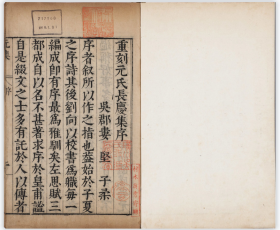 重刻元氏長慶集序
吳郡婁堅子柔
序者敘所以作之指也蓋始於子夏
之序詩其後劉向以校書為職每一
編成即有序最為雅馴矣左思賦三
都成自以名不甚著求序於皇甫謐
自是綴文之士多有託於人以傳者